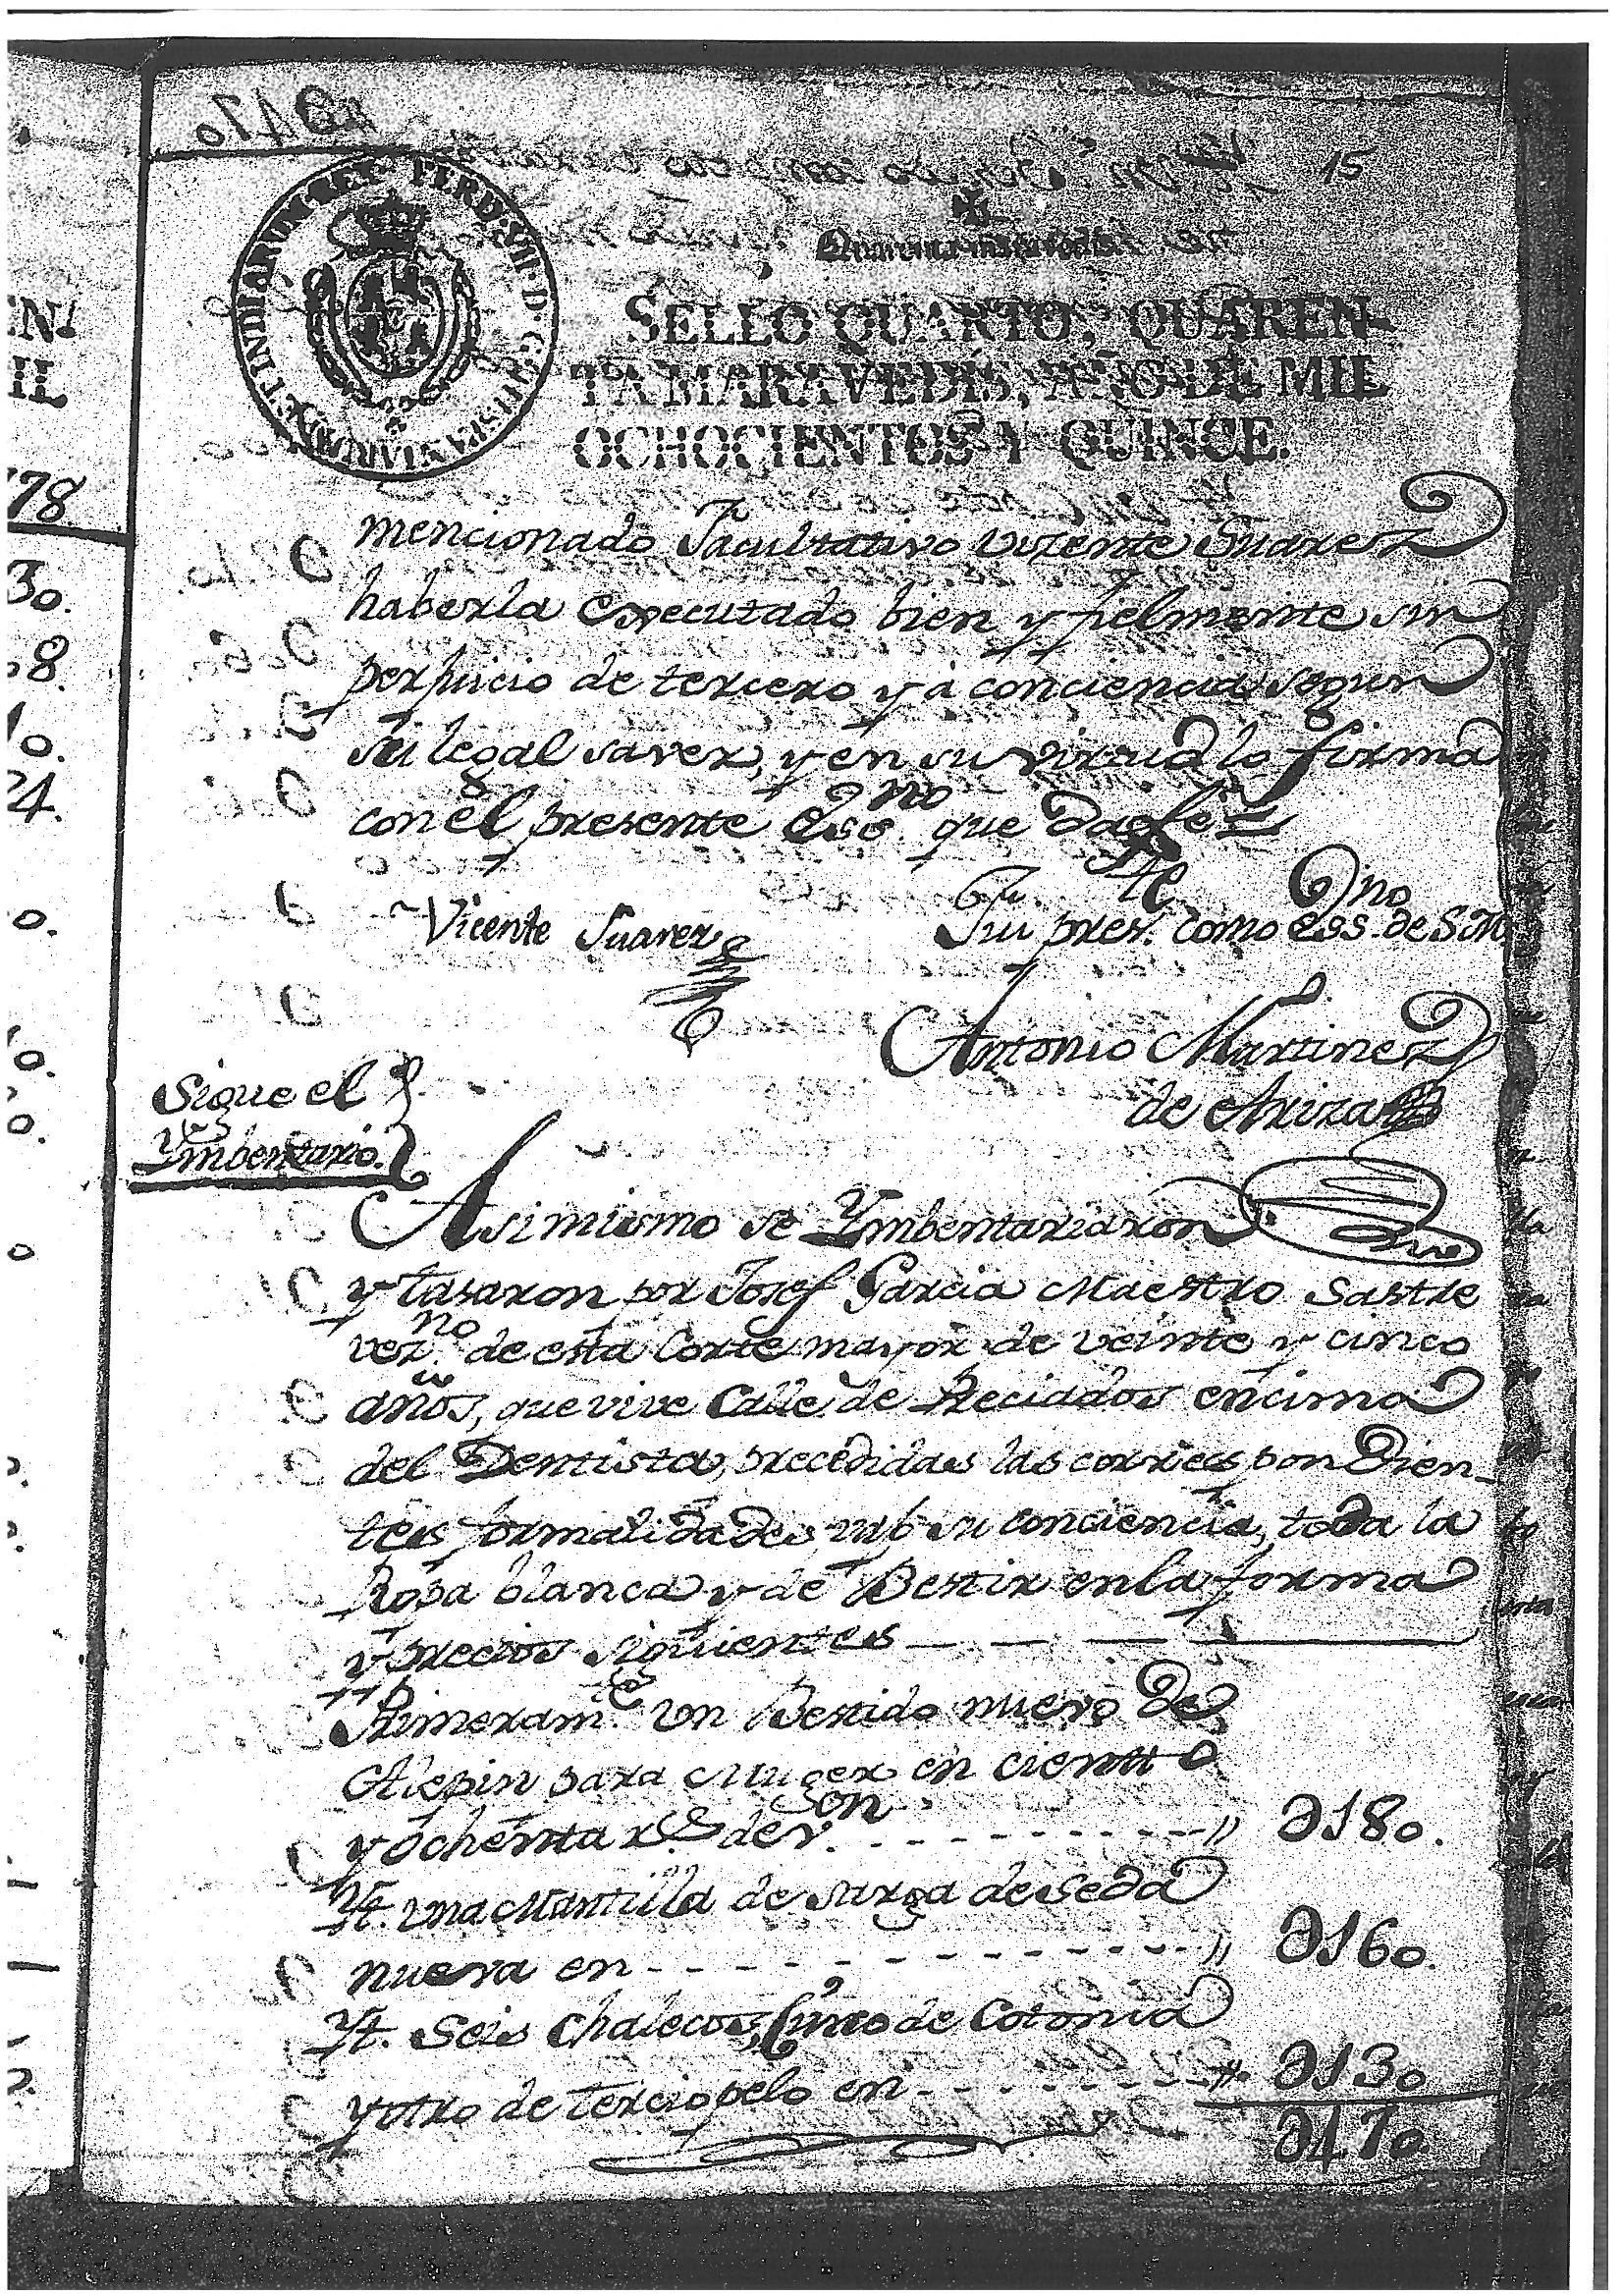 15
HISPANIARUM ET INDIARUM REX FERD. VII. D. G.
Quarenta maravedis
SELLO QUARTO, QUAREN-
TA MARAVEDIS, AÑO DE MIL
OCHOCIENTOS Y QUINCE.
mencionado Facultativo Vizente Suarez
haberla executado bien y fielmente sin
perjuicio de tercero y á conciencia segun
su legal saver, y en su virtud lo firma
con el presente Ess.no que da fe =
Vicente Suarez
Fui pres.te como Ess.no de S. M.
Antonio Martinez
de Ariza
Sigue el
Ymbentario.
Asimismo se Ymbentariaron
y tasaron por Josef Garcia Maestro Sastre
vez.no de esta Corte mayor de veinte y cinco
años, que vive Calle de Preciados encima
del Dentista, precedidas las correspondien-
tes formalidades y bajo su conciencia, toda la
Ropa blanca y de Bestir en la forma
y precios siguientes
Primeram.te un Bestido nuevo de
Alepin para Muger en ciento
y ochenta r.s de v.on - - - - " 180.
Yt. una Mantilla de sarga de seda
nueva en - - - - - " 160.
Yt. Seis Chalecos, Cinco de Cotonia
y otro de terciopelo en - - - - " 130
470
78
30.
8.
10.
24.